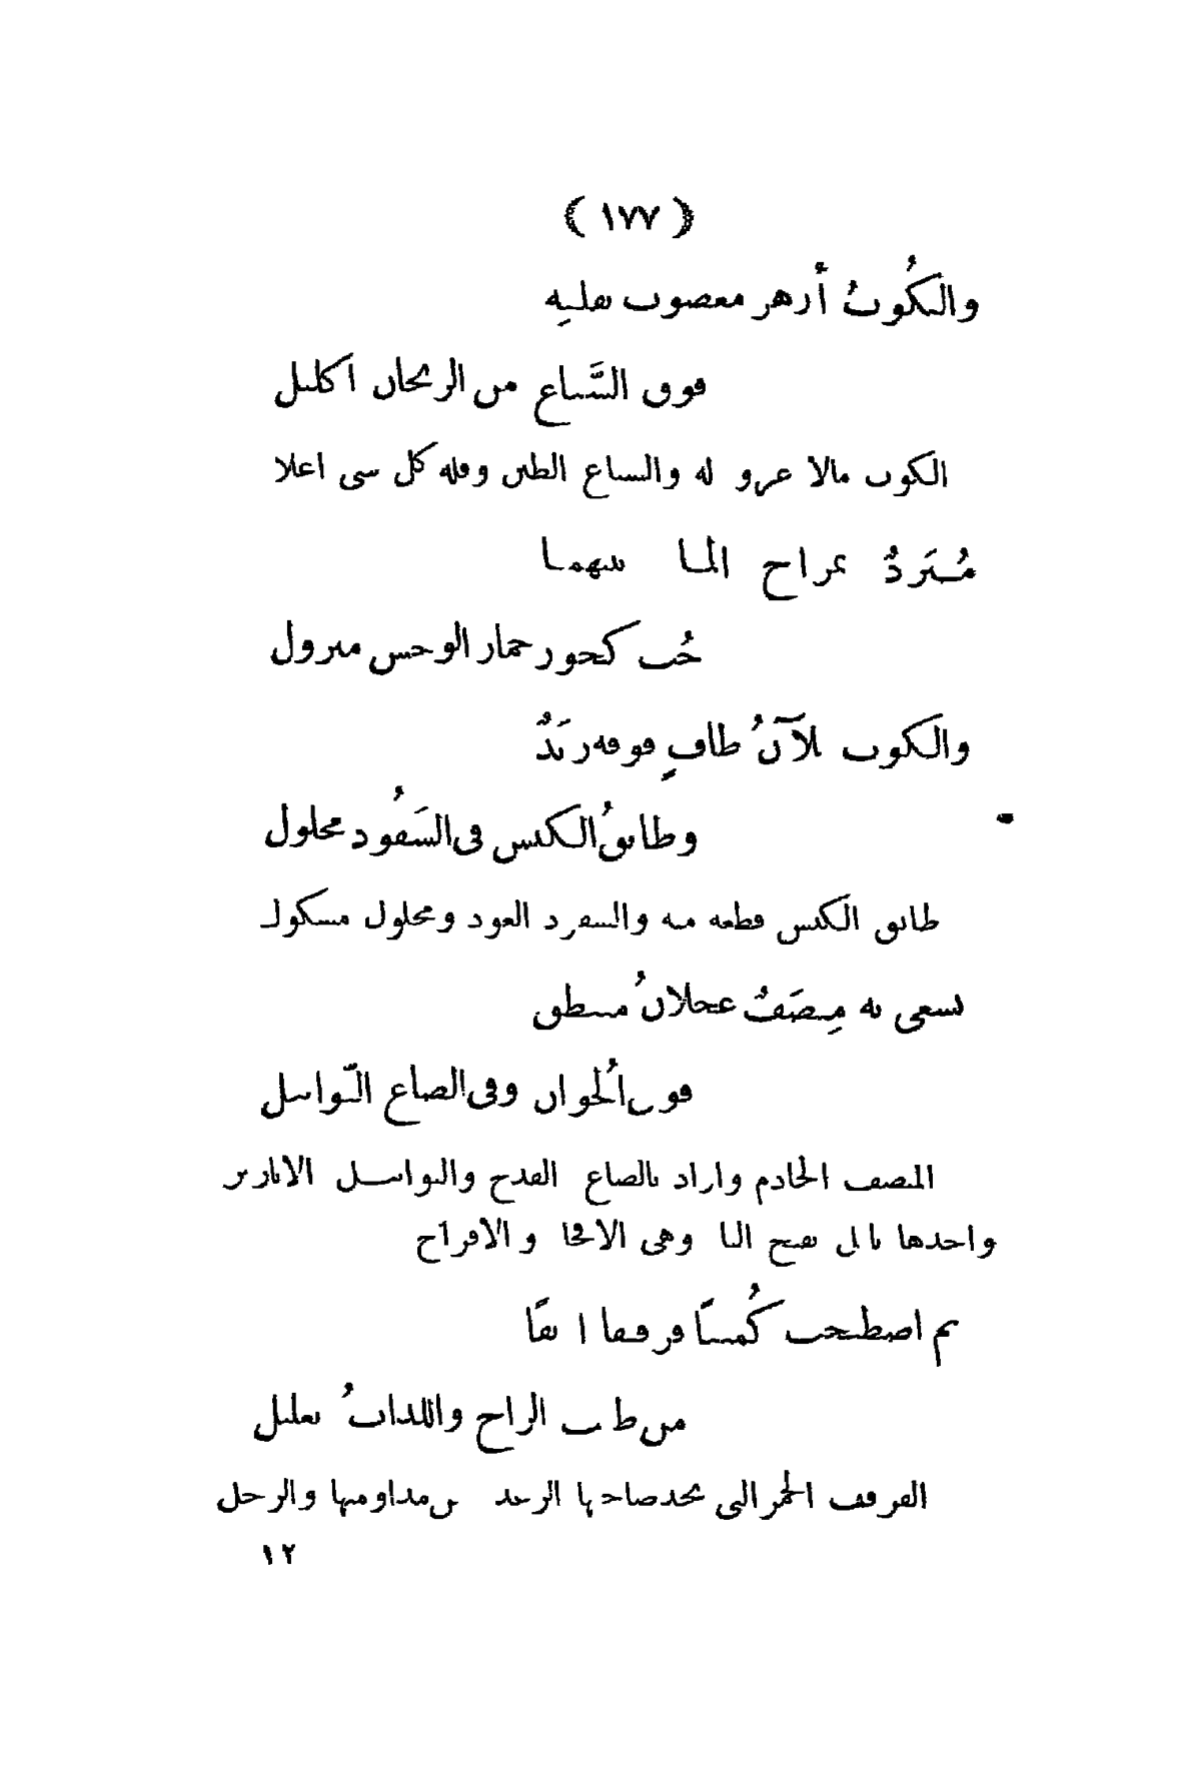 ﴿ ١٧٧ ﴾
والكُوبُ أزهر معصوب بقلتِه
فوق السَّياع من الريحان اكليل
الكوب مالا عروة له والسياع الطين وقلة كل شيء اعلاه
مُبَردٌ بمزاج الماء بينهما
حُب كجوز حمار الوحش مبزول
والكوب ملآنُ طافٍ فوقه زبَدٌ
وطابقُ الكبش فى السَفُّود مخلول
طابق الكبش قطعة منه والسفود العود ومخلول مشكوك
يسعى به مِنصَفٌ عجلانُ منتطق
فوق الخُوان وفى الصاع التّوابيل
المنصف الخادم واراد بالصاع القدح والتوابيل الابازير
واحدها تابل بفتح التاء وهى الاقحاء والاقزاح
ثم اصطبحت كُميتًا قرقفا انفًا
من طيب الراح واللذاتُ تعليل
القرقف الخمر التى صاحبها الرعدة من مداومتها والرجل
١٢